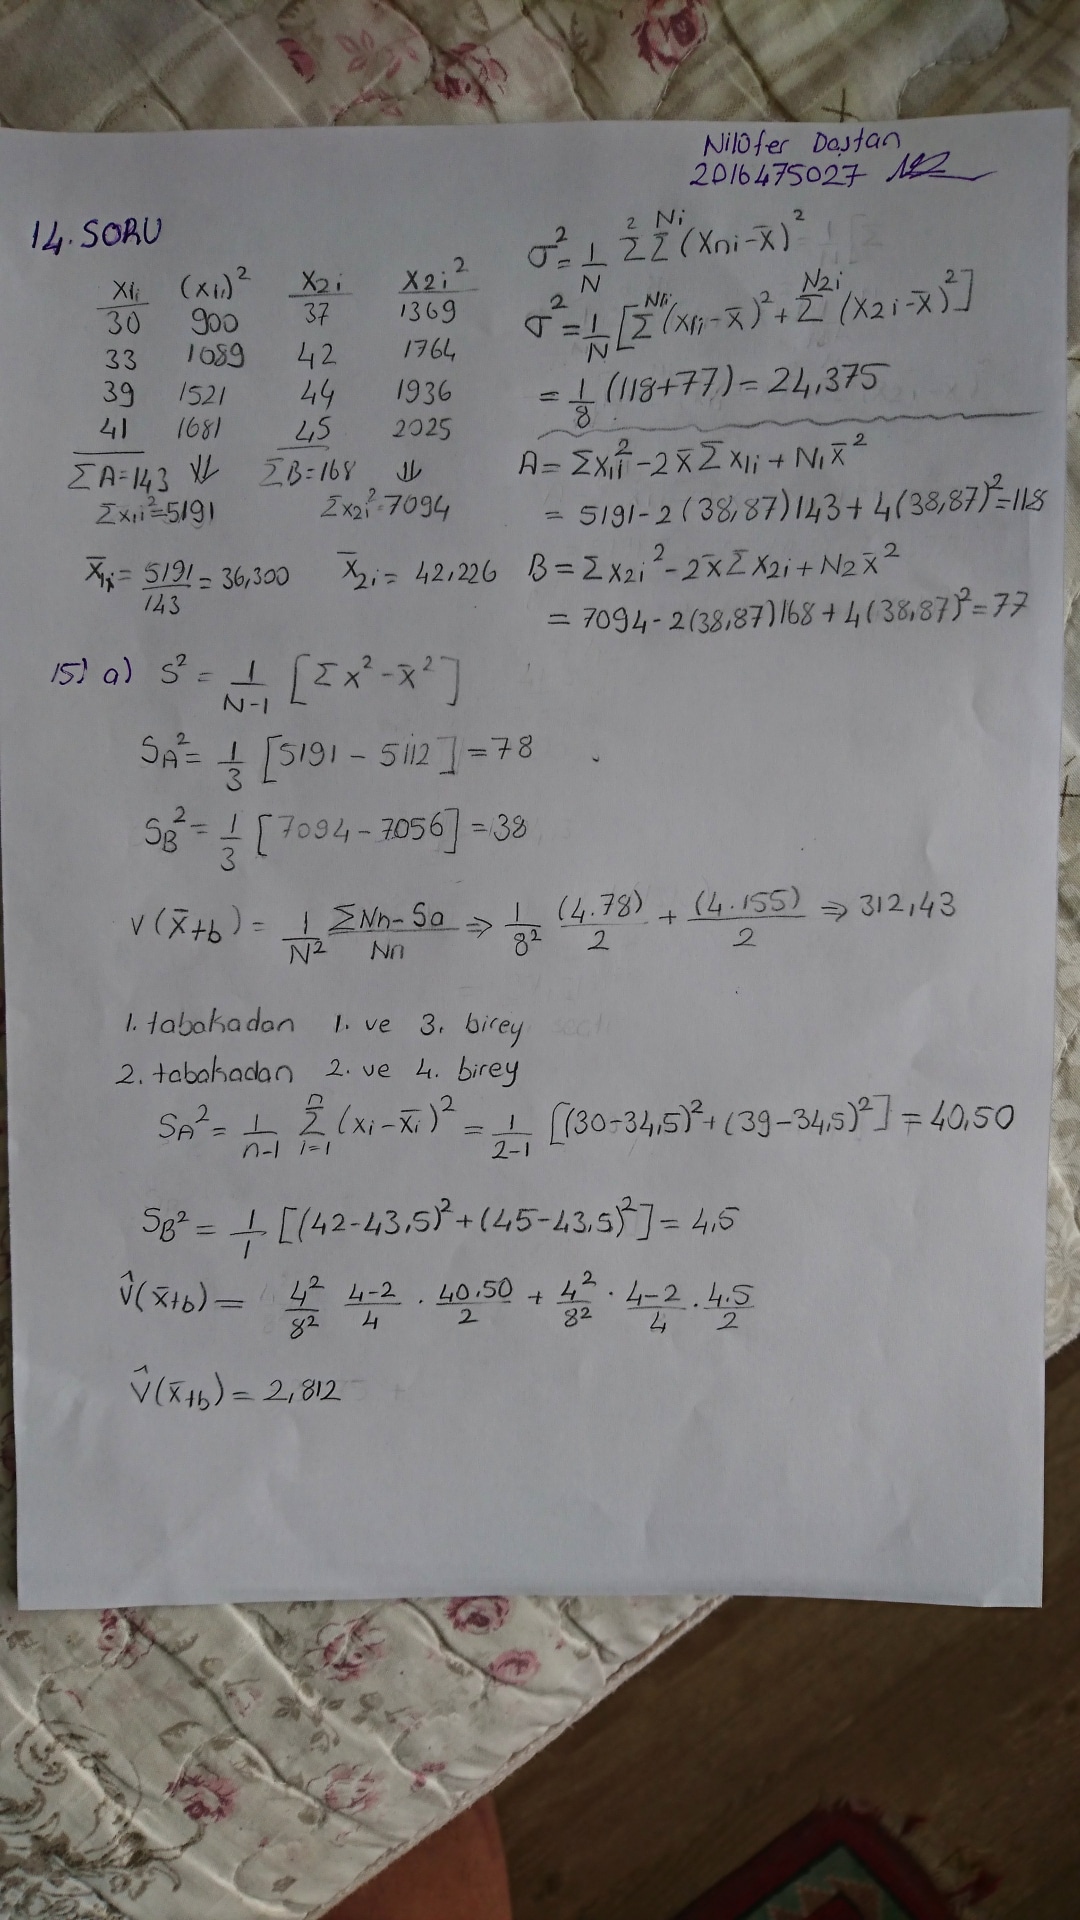 Nilüfer Daştan
2016475027
14. SORU
X1i (x1i)² X2i X2i²
30 900 37 1369
33 1089 42 1764
39 1521 44 1936
41 1681 45 2025
ΣA=143 ⇓ ΣB=168 ⇓
Σx1i²=5191 Σx2i²=7094
X̄1i = 5191/143 = 36,300 X̄2i = 42,226
σ² = 1/N Σ² Σ^Ni (Xni-x̄)²
σ² = 1/N [Σ^N1i (x1i-x̄)² + Σ^N2i (x2i-x̄)²]
= 1/8 (118+77) = 24,375
A = Σx1i² - 2x̄Σx1i + N1x̄²
= 5191-2(38,87)143+4(38,87)²=118
B = Σx2i² - 2x̄Σx2i + N2x̄²
= 7094-2(38,87)168+4(38,87)²=77
15) a) S² = 1/N-1 [Σx² - x̄²]
SA² = 1/3 [5191 - 5112] = 78
SB² = 1/3 [7094 - 7056] = 38
V(x̄tb) = 1/N² ΣNn-Sa/Nn ⇒ 1/8² (4.78)/2 + (4.155)/2 ⇒ 312,43
1. tabakadan 1. ve 3. birey
2. tabakadan 2. ve 4. birey
SA² = 1/n-1 Σ^n i=1 (xi-x̄i)² = 1/2-1 [(30-34,5)²+(39-34,5)²] = 40,50
SB² = 1/1 [(42-43,5)²+(45-43,5)²] = 4,5
V̂(x̄tb) = 4²/8² 4-2/4 . 40.50/2 + 4²/8² . 4-2/4 . 4.5/2
V̂(x̄tb) = 2,812